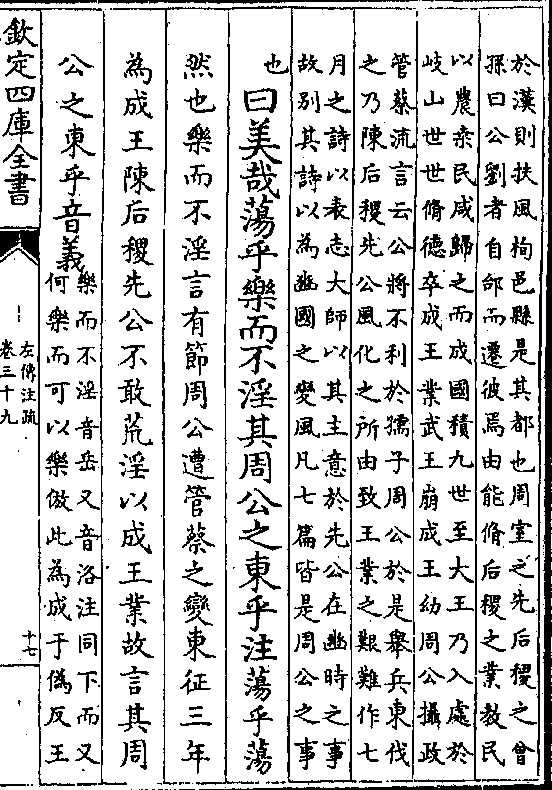 於漢則扶風栒邑縣是其都也周室之先后稷之曾
孫曰公劉者自邰而遷彼焉由能脩后稷之業教民
以農桒民咸歸之而成國積九世至大王乃入處於
岐山世世脩德卒成王業武王崩成王幼周公攝政
管蔡流言云公將不利於孺子周公於是舉兵東伐
之乃陳后稷先公風化之所由致王業之艱難作七
月之詩以表志大師以其主意於先公在豳時之事
故别其詩以為豳國之變風凡七篇皆是周公之事
也
曰美哉蕩乎樂而不淫其周公之東乎注蕩乎蕩
然也樂而不淫言有節周公遭管蔡之變東征三年
為成王陳后稷先公不敢荒淫以成王業故言其周
公之東乎音義
樂而不淫音岳又音洛注同下而又
何樂而可以樂倣此為成于偽反王
欽定四庫全書
左傳注疏
卷三十九
十七